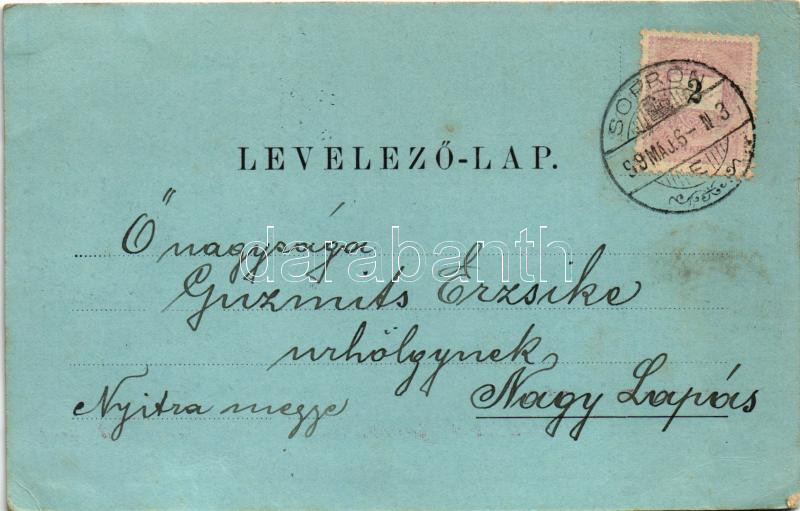 2
SOPRON
99 MÁJ. 6 - N 3
LEVELEZŐ-LAP.
Ő nagysága
darabanth
Guzmits Erzsike
urhölgynek
Nyitra megye Nagy Lapás